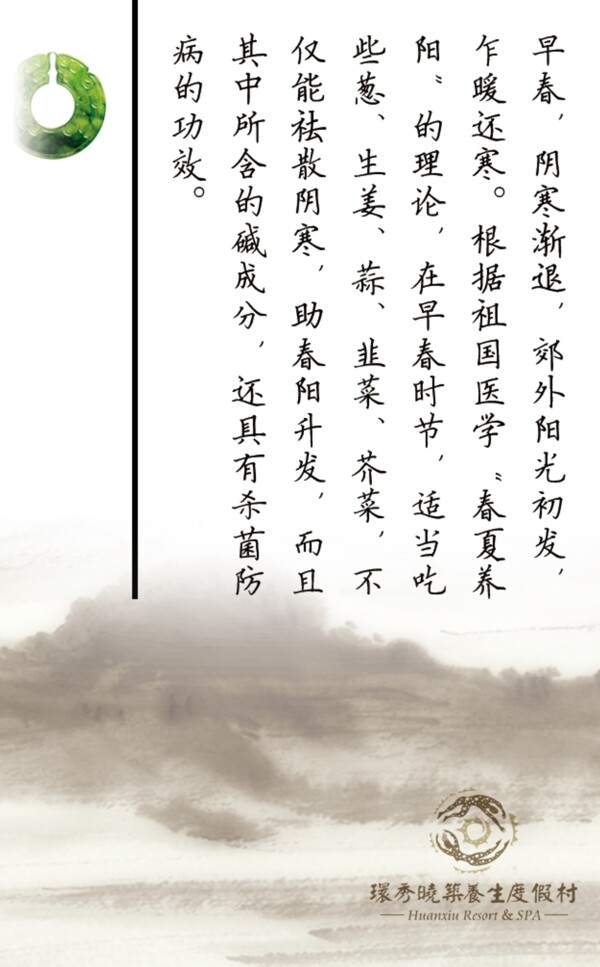 早春，阴寒渐退，郊外阳光初发，
乍暖还寒。根据祖国医学“春夏养
阳”的理论，在早春时节，适当吃
些葱、生姜、蒜、韭菜、芥菜，不
仅能祛散阴寒，助春阳升发，而且
其中所含的碱成分，还具有杀菌防
病的功效。
環秀曉築養生度假村
Huanxiu Resort & SPA